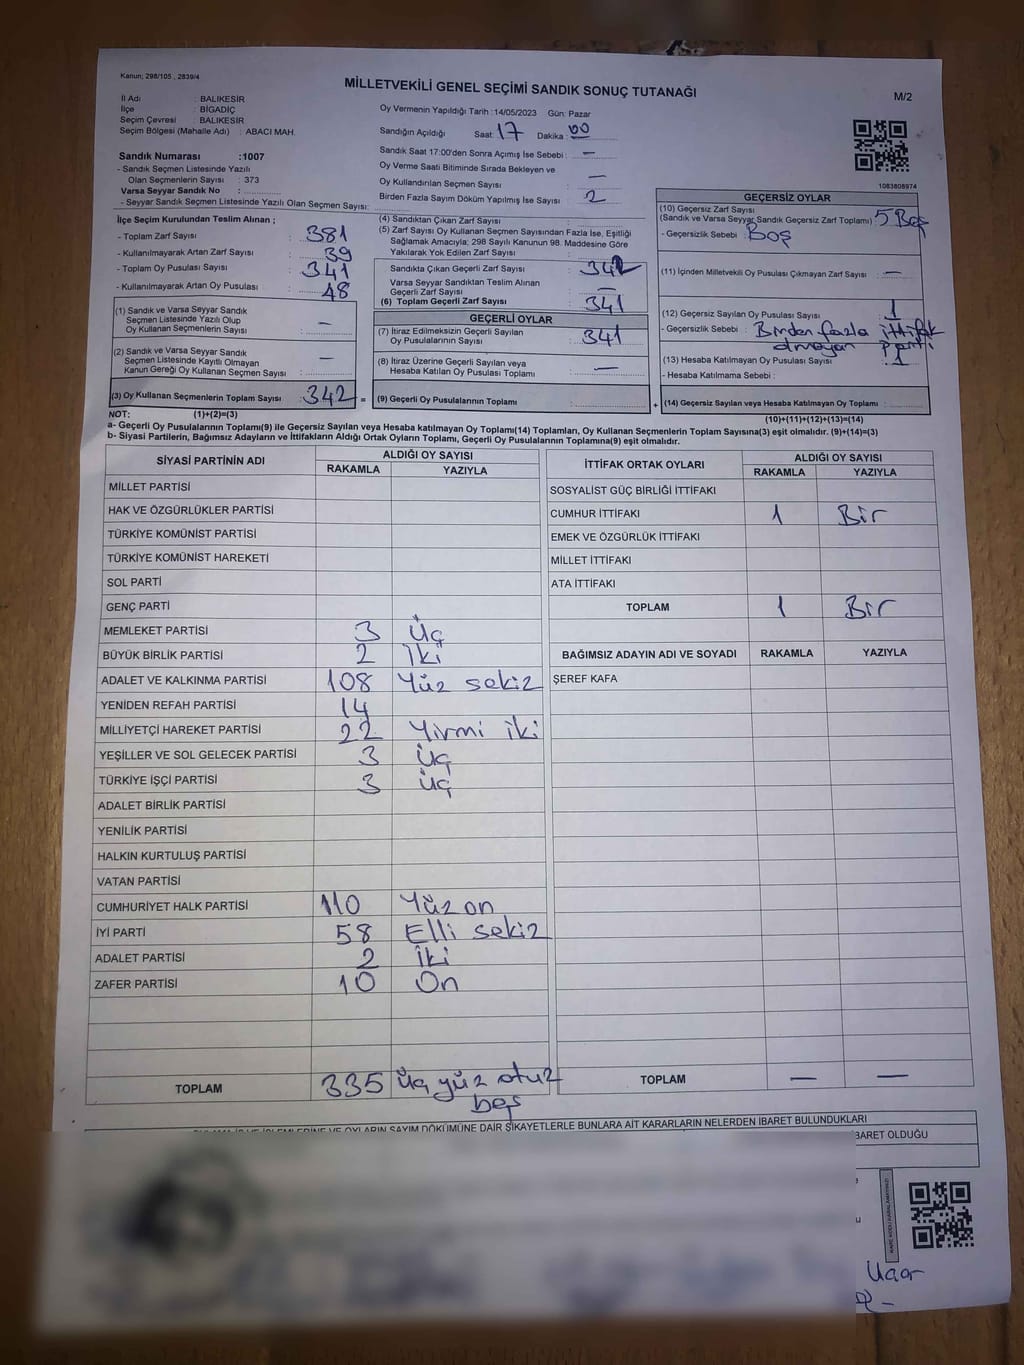 Kanun; 298/105 , 2839/4
MİLLETVEKİLİ GENEL SEÇİMİ SANDIK SONUÇ TUTANAĞI
M/2
İl Adı : BALIKESİR
İlçe : BİGADİÇ
Seçim Çevresi : BALIKESİR
Seçim Bölgesi (Mahalle Adı) : ABACI MAH.
Sandık Numarası :1007
- Sandık Seçmen Listesinde Yazılı
Olan Seçmenlerin Sayısı : 373
Varsa Seyyar Sandık No :
- Seyyar Sandık Seçmen Listesinde Yazılı Olan Seçmen Sayısı:
Oy Vermenin Yapıldığı Tarih :14/05/2023 Gün: Pazar
Sandığın Açıldığı Saat: 17 Dakika : 00
Sandık Saat 17:00'den Sonra Açımış İse Sebebi : —
Oy Verme Saati Bitiminde Sırada Bekleyen ve
Oy Kullandırılan Seçmen Sayısı —
Birden Fazla Sayım Döküm Yapılmış İse Sayısı 2
1083808974
İlçe Seçim Kurulundan Teslim Alınan ;
- Toplam Zarf Sayısı : 381
- Kullanılmayarak Artan Zarf Sayısı : 39
- Toplam Oy Pusulası Sayısı : 341
- Kullanılmayarak Artan Oy Pusulası : 48
(1) Sandık ve Varsa Seyyar Sandık
Seçmen Listesinde Yazılı Olup
Oy Kullanan Seçmenlerin Sayısı : —
(2) Sandık ve Varsa Seyyar Sandık
Seçmen Listesinde Kayıtlı Olmayan
Kanun Gereği Oy Kullanan Seçmen Sayısı : —
(3) Oy Kullanan Seçmenlerin Toplam Sayısı : 342 =
(4) Sandıktan Çıkan Zarf Sayısı :
(5) Zarf Sayısı Oy Kullanan Seçmen Sayısından Fazla İse, Eşitliği
Sağlamak Amacıyla; 298 Sayılı Kanunun 98. Maddesine Göre
Yakılarak Yok Edilen Zarf Sayısı :
Sandıkta Çıkan Geçerli Zarf Sayısı : 342
Varsa Seyyar Sandıktan Teslim Alınan
Geçerli Zarf Sayısı : —
(6) Toplam Geçerli Zarf Sayısı : 341
GEÇERLİ OYLAR
(7) İtiraz Edilmeksizin Geçerli Sayılan
Oy Pusulalarının Sayısı : 341
(8) İtiraz Üzerine Geçerli Sayılan veya
Hesaba Katılan Oy Pusulası Toplamı : —
(9) Geçerli Oy Pusulalarının Toplamı : +
GEÇERSİZ OYLAR
(10) Geçersiz Zarf Sayısı
(Sandık ve Varsa Seyyar Sandık Geçersiz Zarf Toplamı) : 5 Beş
- Geçersizlik Sebebi : Boş
(11) İçinden Milletvekili Oy Pusulası Çıkmayan Zarf Sayısı : —
(12) Geçersiz Sayılan Oy Pusulası Sayısı : 1
- Geçersizlik Sebebi : Birden fazla ittifak
olmayan parti
(13) Hesaba Katılmayan Oy Pusulası Sayısı : 1
- Hesaba Katılmama Sebebi :
(14) Geçersiz Sayılan veya Hesaba Katılmayan Oy Toplamı :
NOT: (1)+(2)=(3) (10)+(11)+(12)+(13)=(14)
a- Geçerli Oy Pusulalarının Toplamı(9) ile Geçersiz Sayılan veya Hesaba katılmayan Oy Toplamı(14) Toplamları, Oy Kullanan Seçmenlerin Toplam Sayısına(3) eşit olmalıdır. (9)+(14)=(3)
b- Siyasi Partilerin, Bağımsız Adayların ve İttifakların Aldığı Ortak Oyların Toplamı, Geçerli Oy Pusulalarının Toplamına(9) eşit olmalıdır.
SİYASİ PARTİNİN ADI ALDIĞI OY SAYISI
RAKAMLA YAZIYLA
MİLLET PARTİSİ
HAK VE ÖZGÜRLÜKLER PARTİSİ
TÜRKİYE KOMÜNİST PARTİSİ
TÜRKİYE KOMÜNİST HAREKETİ
SOL PARTİ
GENÇ PARTİ
MEMLEKET PARTİSİ 3 Üç
BÜYÜK BİRLİK PARTİSİ 2 İki
ADALET VE KALKINMA PARTİSİ 108 Yüz sekiz
YENİDEN REFAH PARTİSİ 14
MİLLİYETÇİ HAREKET PARTİSİ 22 Yirmi iki
YEŞİLLER VE SOL GELECEK PARTİSİ 3 Üç
TÜRKİYE İŞÇİ PARTİSİ 3 Üç
ADALET BİRLİK PARTİSİ
YENİLİK PARTİSİ
HALKIN KURTULUŞ PARTİSİ
VATAN PARTİSİ
CUMHURİYET HALK PARTİSİ 110 Yüz on
İYİ PARTİ 58 Elli sekiz
ADALET PARTİSİ 2 İki
ZAFER PARTİSİ 10 On
TOPLAM 335 üç yüz otuz
beş
İTTİFAK ORTAK OYLARI ALDIĞI OY SAYISI
RAKAMLA YAZIYLA
SOSYALİST GÜÇ BİRLİĞİ İTTİFAKI
CUMHUR İTTİFAKI 1 Bir
EMEK VE ÖZGÜRLÜK İTTİFAKI
MİLLET İTTİFAKI
ATA İTTİFAKI
TOPLAM 1 Bir
BAĞIMSIZ ADAYIN ADI VE SOYADI RAKAMLA YAZIYLA
ŞEREF KAFA
TOPLAM — —
OYLARIN SAYIM DÖKÜMÜNE DAİR ŞİKAYETLERLE BUNLARA AİT KARARLARIN NELERDEN İBARET BULUNDUKLARI
BARET OLDUĞU
Uçar